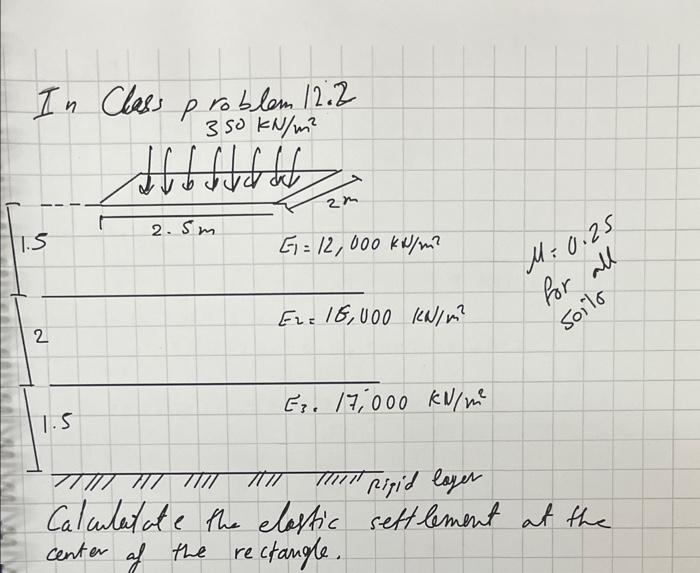 In Class problem 12.2
350 KN/m²
2m
2.5m
1.5
E1 = 12,000 KN/m²
M = 0.25
for all
soils
KN/m²
2
E3. 17,000 KN/m²
1.5
Rigid layer
Calculatate the elastic settlement at the
center of the rectangle.